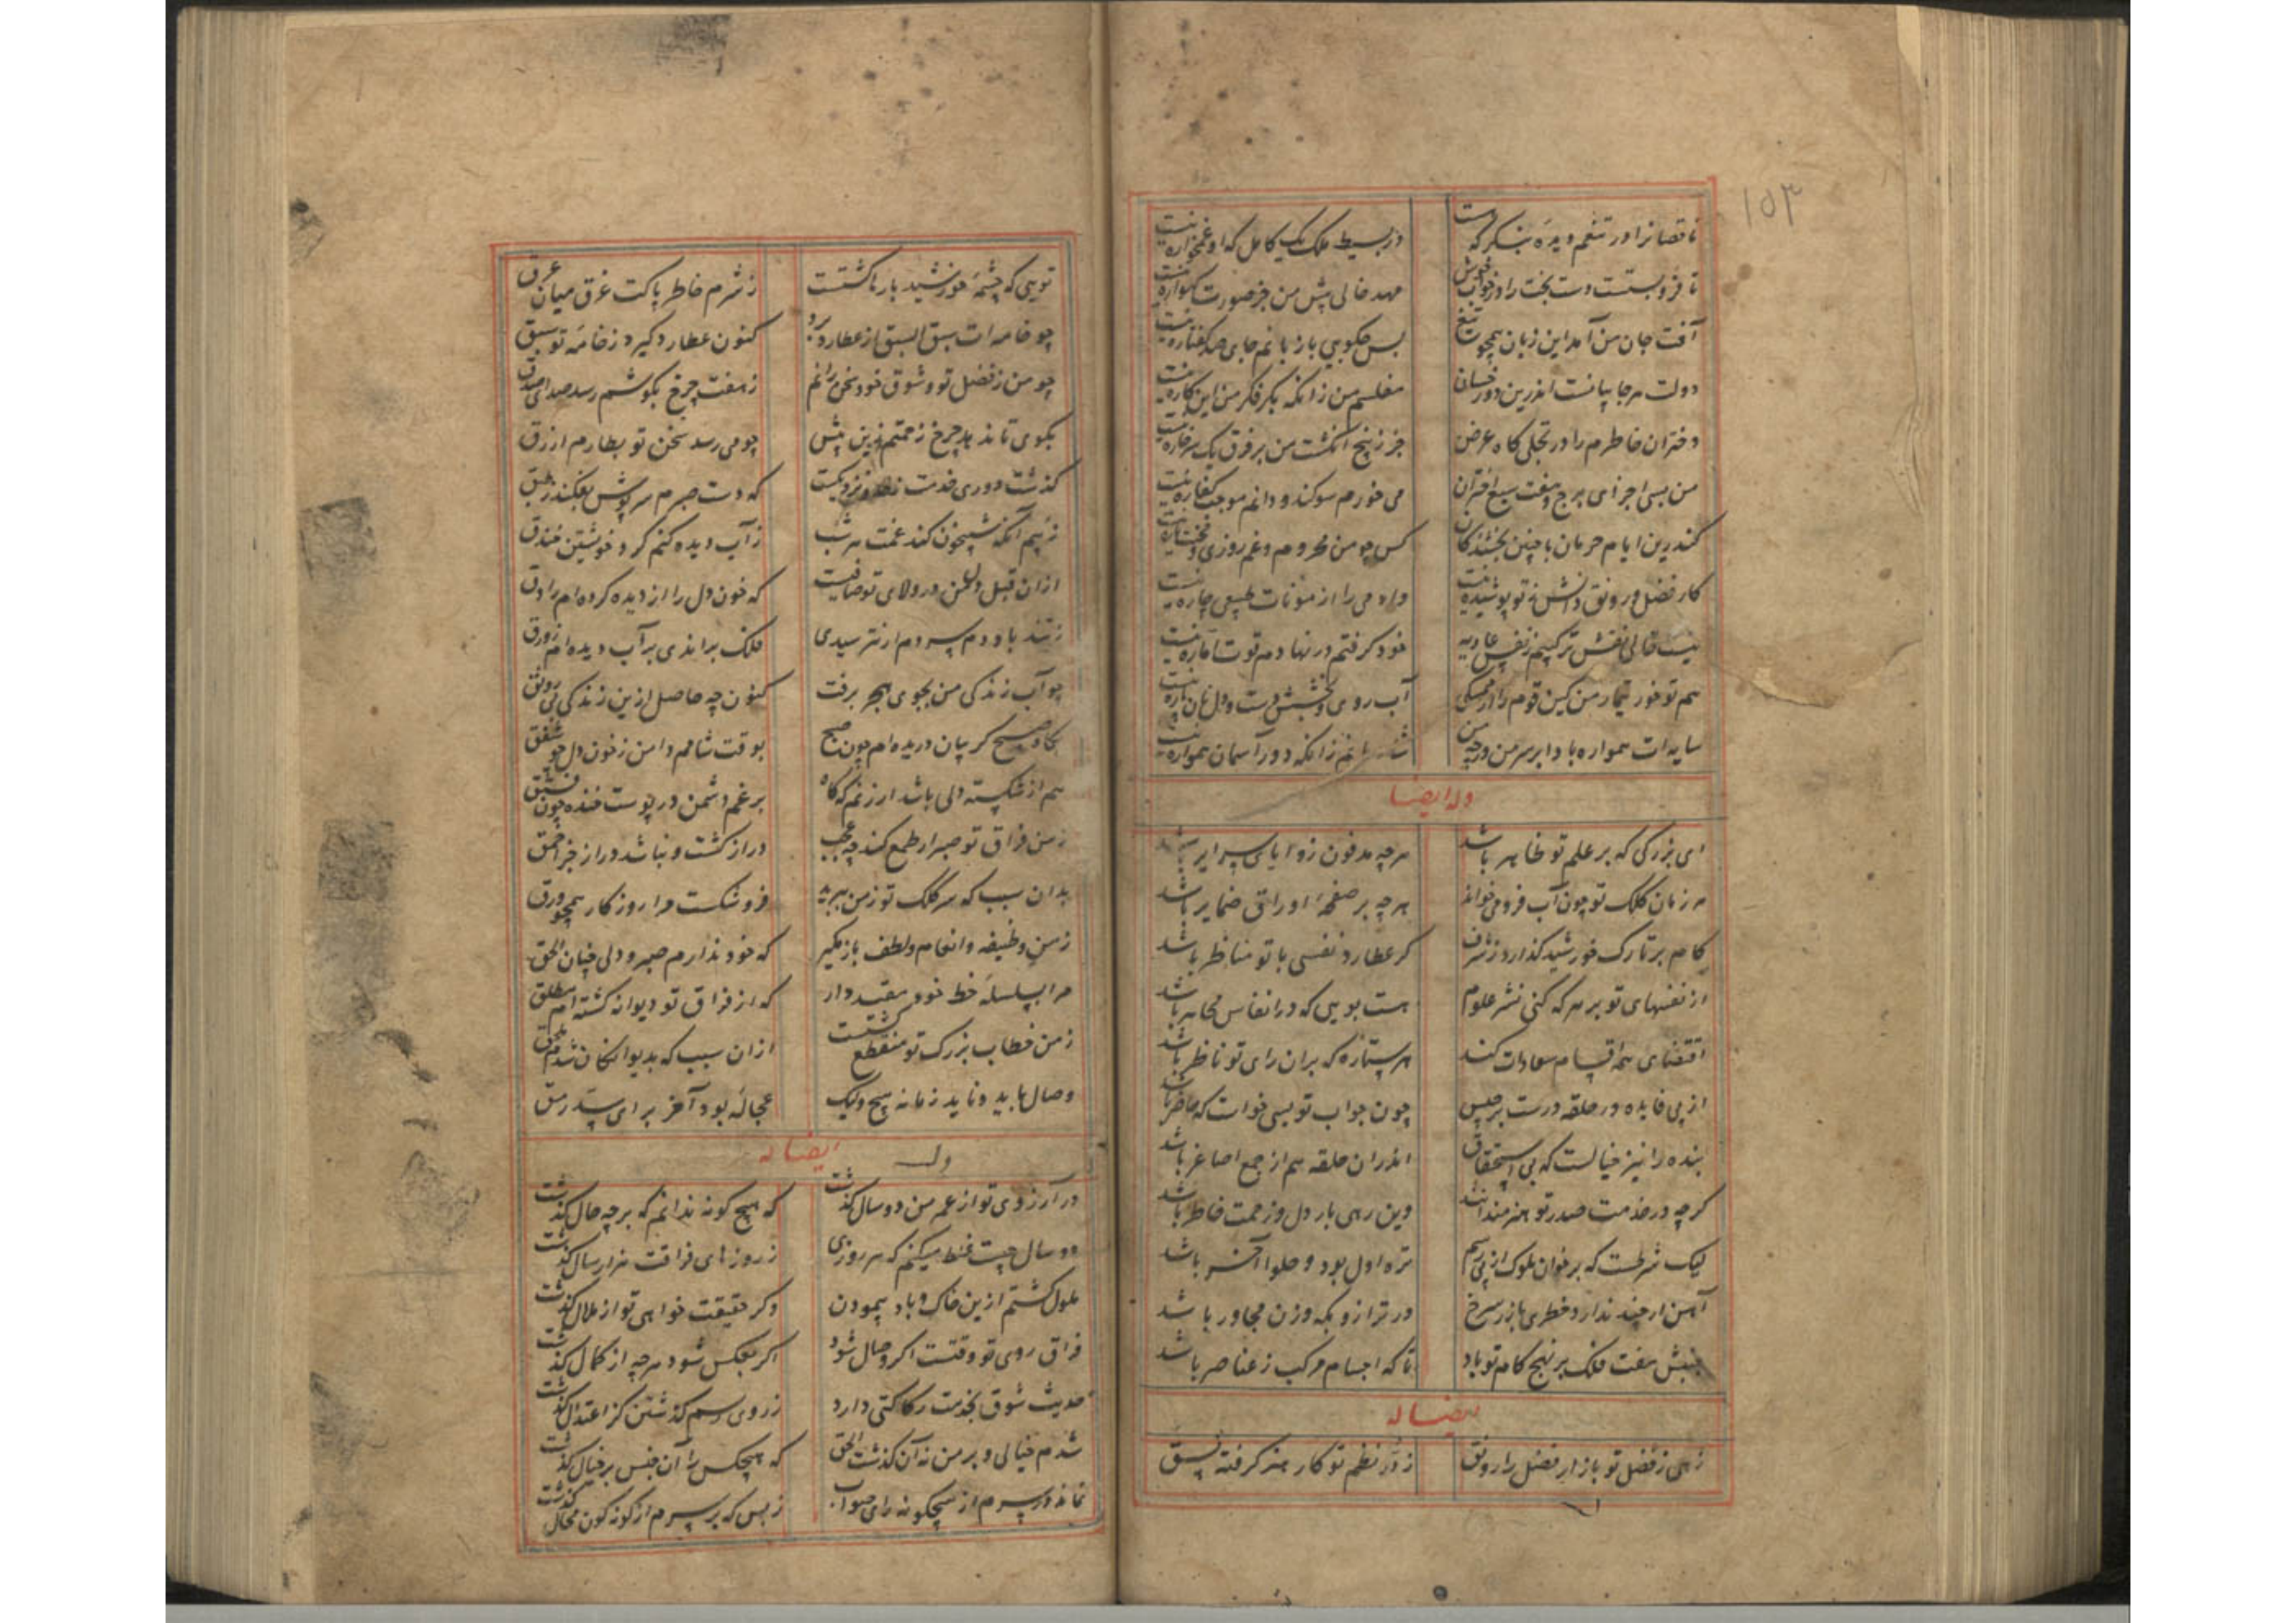 ۱۵۳
ناقصانرا در تنعم دیده بنکر که هست در بسیط ملک یک کامل که او غمخواره نیست
تا فروبستست دست بخت را در خواب خوش مهد خالی پیش من جز صورت کهواره نیست
آفت جان من آمد این زبان همچو تیغ بس چکویی با زبانم جای صد کفتاره نیست
دولت هرجایانست اندرین دور خسان مفلسم من زانکه بکر فکر من این کاره نیست
دختران خاطرم را در تجلی کاه عرض جز ز پنج انکشت من بر فرق یک سرخاره نیست
من بسی اجزای برج و هفت سبع اختران می خورم سوکند و دانم موجب کفاره نیست
کندرین ایام حرمان با چنین بخشندکان کس چو من محروم و غم روزی و نیست
کار فضل و رونق دانش ز تو پوشیده نیست وادمی را از مؤنات طبیعی چاره نیست
نیست خالی نقش ترکیبم ز نفس عادیه خود کرفتم در نهادم قوت اماره نیست
هم تو خور تیمار من کین قوم را از ممسکی آب روی و بخشش هست و دل نان پاره نیست
سایه ات همواره بادا بر سر من وجه من زانکه دور آسمان همواره نیست
وله ایضا
ای بزرکی که بر علم تو ظاهر باشد هرچه مدفون زوایای سرایر باشد
هر زمان کلک تو چون آب فرو می خواند هرچه بر صفحهٔ اوراق ضمایر باشد
کام بر تارک خورشید کذارد ز شرف کر عطارد نفسی با تو مناظر باشد
از نفسهای تو بر هر که کنی نشر علوم هست بویی که در انفاس مجاهر باشد
اقتضای همه اقسام سعادات کند هر ستاره که بران رای تو ناظر باشد
از پی فایده در حلقه درست برجیس چون جواب تو بسی خواست که حاضر باشد
بنده را نیز خیالست که بی استحقاق اندران حلقه هم از جمع اصاغر باشد
کرچه در خدمت صدر تو هنرمندانند وین رهی بار دل و زحمت خاطر باشد
لیک شرطست که بر خوان ملوک از پی رسم تره اول بود و حلوا آخر باشد
آهن ار چند ندارد خطری با زر سرخ در ترازو بکه وزن مجاور باشد
جنبش هفت فلک بر نهج کام تو باد تا که اجسام مرکب ز عناصر باشد
ایضا له
زهی ز فضل تو بازار فضل را رونق ز در نظم تو کار هنر کرفته نسق
تویی که چشمهٔ خورشید بارها کشتست ز شرم خاطر پاکت غرق میان عرق
چو خامه ات سبق السبق از عطارد برد کنون عطارد کیرد ز خامهٔ تو سبق
چو من ز فضل تو و شوق خود سخن رانم ز هفت چرخ بکوشم رسد صدای صدق
بکوی تا ندهد چرخ زحمتم زین پیش چو می رسد سخن تو بطارم ازرق
کذشت دوری خدمت ز حد و نزدیکست که دست صبرم سرپوش بفکند ز طبق
ز بیم آنکه شبیخون کند غمت هر شب ز آب دیده کنم کرد خویشتن خندق
ازان قبل دل من در ولای تو صافیست که خون دل را از دیده کرده ام راوق
ز تند باد دم سردم ار نترسیدی فلک براندی بر آب دیده ام زورق
چو آب زندکی من بجوی هجر برفت کنون چه حاصل ازین زندکی بی رونق
بکاه صبح کریبان دریده ام چون صبح بوقت شامم دامن ز خون دل چو شفق
هم از شکسته دلی باشد ار ز غم که کاه بر غم دشمن در پوست خنده چون فستق
ز من فراق تو صبر ار طمع کند چه عجب دراز کشت و نباشد دراز جز احمق
بدان سبب که سر کلک تو ز من ببرید فروشکست مرا روزکار همچو ورق
ز من وظیفه و انعام و لطف باز مکیر که خود ندارم صبر و دلی چنان الحق
مرا بسلسلهٔ خط خود مقید دار که از فراق تو دیوانه کشته ام مطلق
ز من خطاب بزرک تو منقطع کشتست ازان سبب که بدیوانکان شدم ملحق
وصال باید و ناید زمانه هیچ ولیک عجاله بود آخر برای سد رمق
وله ایضا له
در آرزوی تو از عمر من دو سال کذشت که هیچ کونه ندانم که بر چه حال کذشت
دو سال چیست غلط میکنم که هر روزی ز روزهای فراقت هزار سال کذشت
ملول کشتم ازین خاک و باد پیمودن وکر حقیقت خواهی تو از ملال کذشت
فراق روی تو وقتست اکر وصال شود اکر بعکس شود هرچه از کمال کذشت
حدیث شوق بخدمت رکاکتی دارد ز روی رسم کذشتن کز اعتدال کذشت
شدم خیالی و بر من نه آن کذشت الحق که هیچکس را آن جنس بر خیال کذشت
نماند در سرم از هیچکونه رای صواب ز بس که بر سرم از کونه کون محال کذشت